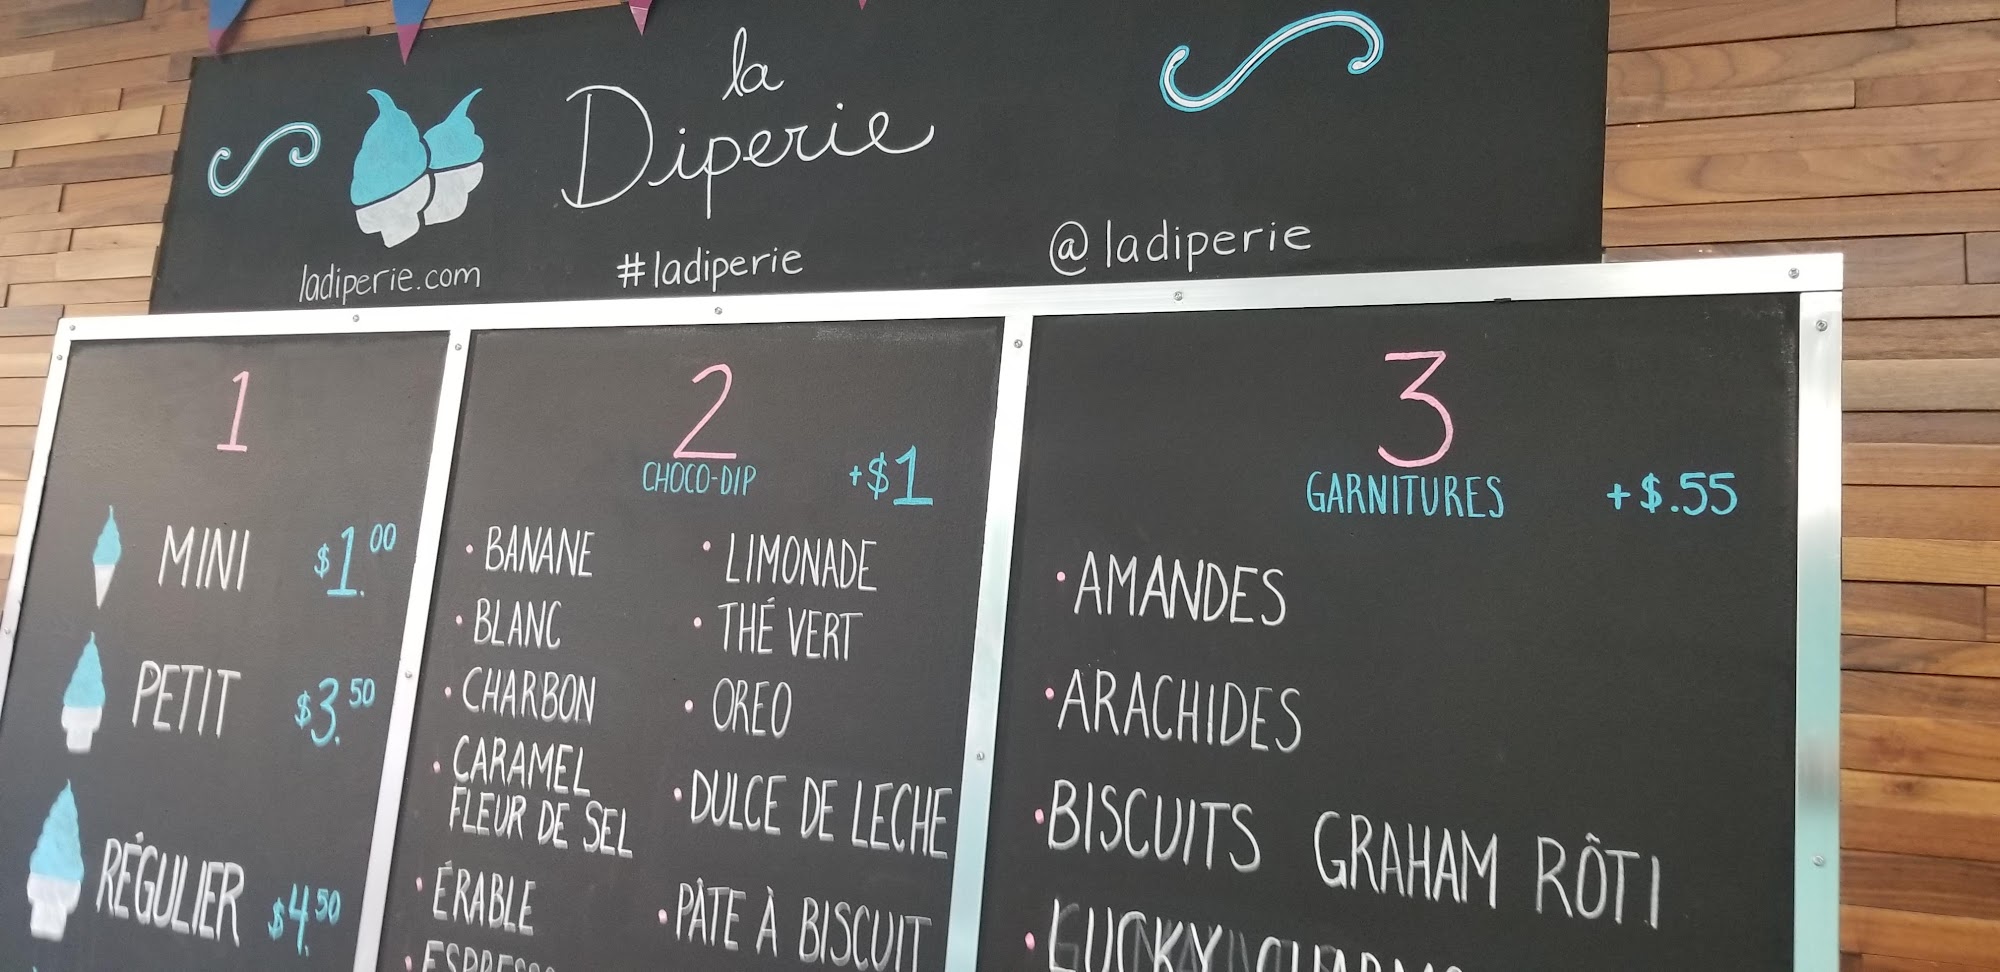 la
Diperie
ladiperie.com
#ladiperie
@ladiperie
1
MINI $1.00
PETIT $3.50
RÉGULIER $4.50
2
CHOCO-DIP +$1
• BANANE
• BLANC
• CHARBON
• CARAMEL
FLEUR DE SEL
• ÉRABLE
• ESPRESSO
• LIMONADE
• THÉ VERT
• OREO
• DULCE DE LECHE
• PÂTE À BISCUIT
3
GARNITURES +$.55
• AMANDES
• ARACHIDES
• BISCUITS GRAHAM RÔTI
• LUCKY CHARMS